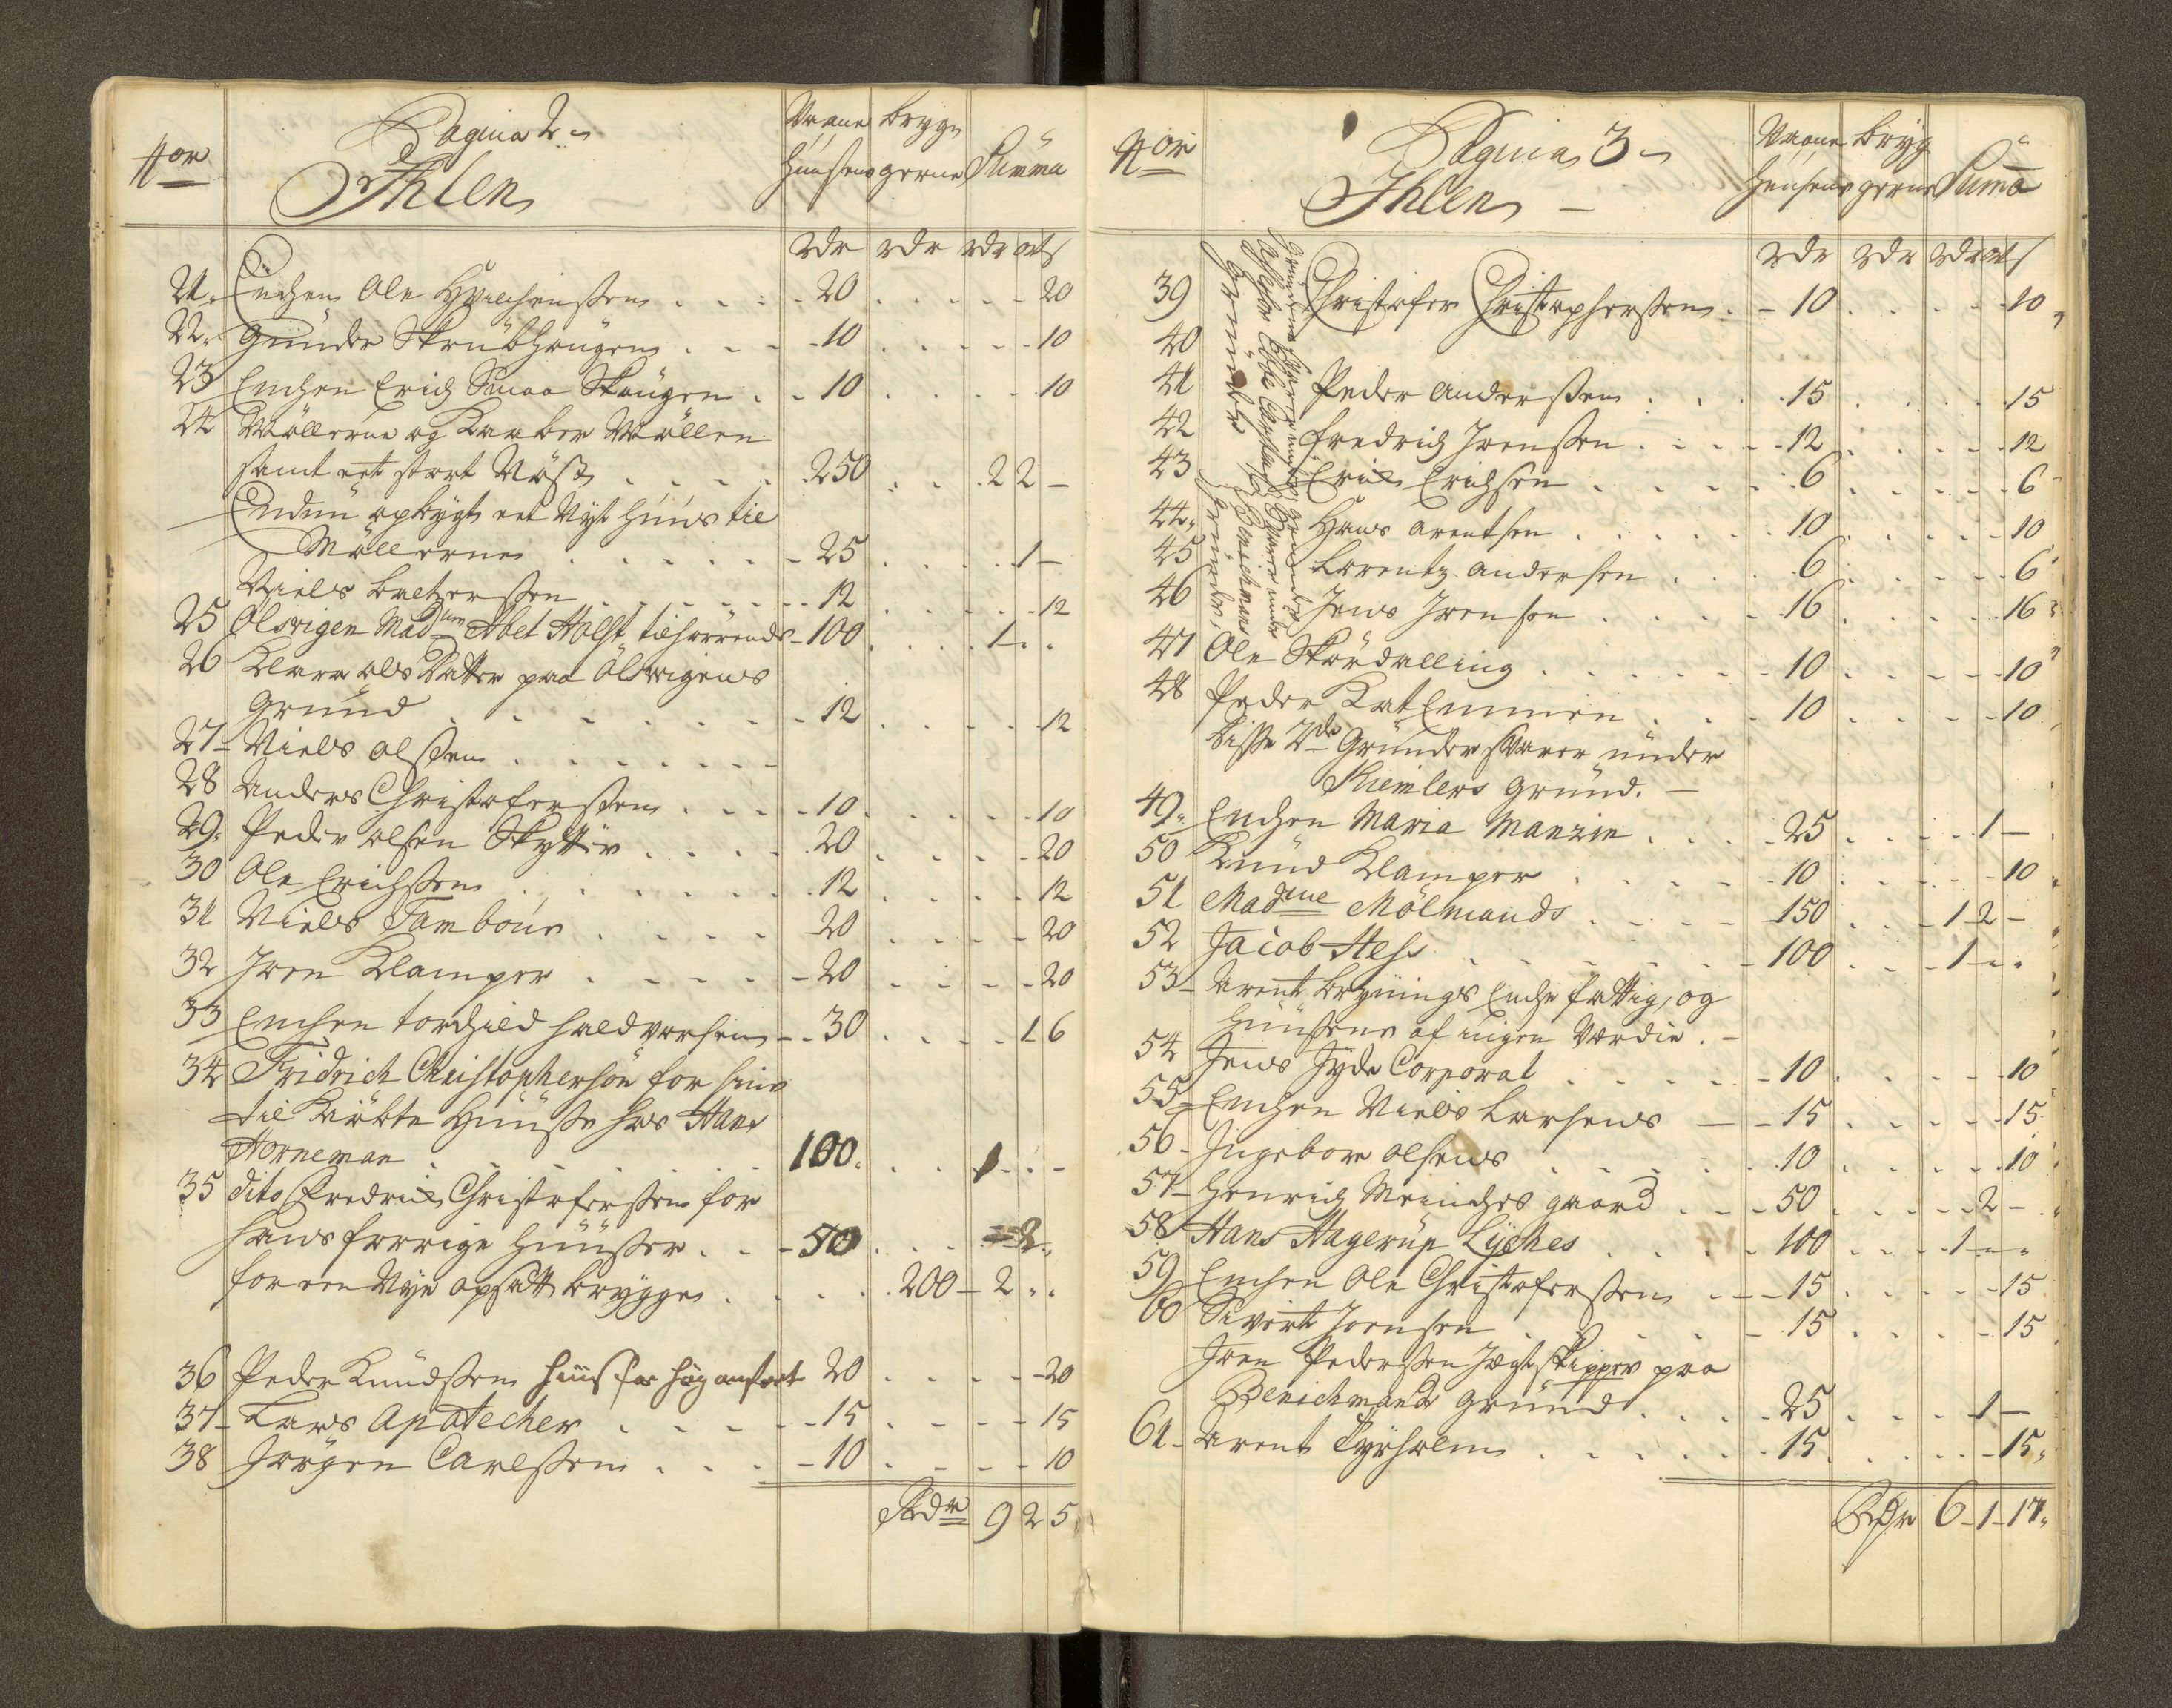 Pagina 2
Nor
Ihlen
Vaane Huusene
brygn gerne
Summa
rdr rdr rdr ort s
21. Enchen Ole . . . 20 . . . 20
22. Gunder Skrubhougen . . . 10 . . . 10
23 Enchen Erich Smaa Skougen . . 10 . . . 10
24 Möllerne og Kaaber Möllen
samt eet stort Nöst . . . 250 . . 2 2 –
Endnu opbygt eet Nyt Huus til
Möllerne . . . 25 . . . 1 –
Niels Baltzerssen . . . 12 . . . 12
25 Olsvigen Madme Abel Holst tilhörende – 100 . . . 1 . .
26 Karen Ols Datter paa Olsvigens
Grund . . . 12 . . . 12
27 – Niels Olssen . . .
28 Anders Christoferssen . . . 10 . . . 10
29. Peder Olsen Skytter . . . 20 . . . 20
30 Ole Erichssen . . . 12 . . . 12
31 Niels Tambour . . . 20 . . . 20
32 Jon Klamper . . . 20 . . . 20
33 Enchen Torchild Haldvorsens – 30 . . . 1 6
34 Fridrich Christophersön for sine
til Kiöbte Huusse hos Hans
Horneman . . . 100. . . 1 . . –
35 dito Fredrich Christoferssen for
hans forrige Huusser . . . 50 . . . 2 .
for een Nye opsatt brygge . . . 200 – 2 . .
36 Peder Knudssen 20 . . . 20
37 – Lars Apotecher . . . 15 . . . 15
38 Jörgen Carlssen . . . 10 . . . 10
Rdr 9 2 5
Pagina 3
Nor
Ihlen –
Vaane Huusene
bryg gerne
Summa
rdr rdr rdr ort s
39 Christofer Christopherssen . – 10 . . . 10
40
41 Peder Anderssen . . . 15 . . . 15
42 Fredrich Jonssen . . . 12 . . . 12
43 Erich Erichsen . . . 6 . . . 6
44. Hans Arentsen . . . 10 . . . 10
45 Lorentz Andersen . . . 6 . . . 6
46 Jens Jonsen . . . 16 . . . 16
47 Ole Skördalling . . . 10 . . . 10
48 Peder Kat Emmien . . . 10 . . . 10
Disse 2de Grunder svarer under
Kiemlers Grund. –
49. Enchen Maria Manzin . . . 25 . . . 1 –
50 Knud Klamper . . . 10 . . . 10
51 Madme Mölmands . . . 150 . . . 1 2 –
52 Jacob Hess . . . 100 . . . 1 . .
53 – Arent Brynings Enche fattig, og
Huusene af ingen Verdie. –
54 Jens Jyde Corporal . . . 10 . . . 10
55 – Enchen Niels Larsens – – 15 . . . 15
56 – Ingebor Olsens . . . 10 . . . 10
57 – Henrich Meinches gaard . . . 50 . . . 2 –
58 Hans Hagerup Lyches . . . 100 . . . 1 – .
59 Enchen Ole Christoferssens . – – 15 . . . 15
60 Sivert Joensen . . . 15 . . . 15
Jon Pederssen Jægt skipper paa
Bleichmands Grund . . . 25 . . . 1 –
61 – Arent Tyrholm . . . 15 . . . 15.
Rdr 6 – 1 – 17.